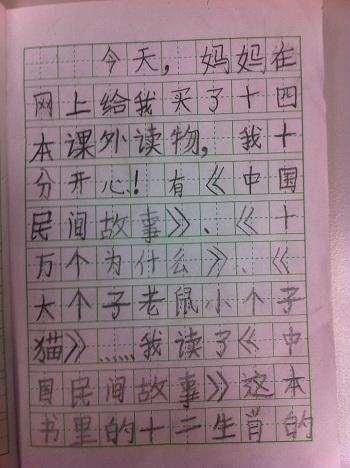 今天，妈妈在
网上给我买了十四
本课外读物，我十
分开心！有《中国
民间故事》、《十
万个为什么》、《
大个子老鼠小个子
猫》……我读了《中
国民间故事》这本
书里的十二生肖的